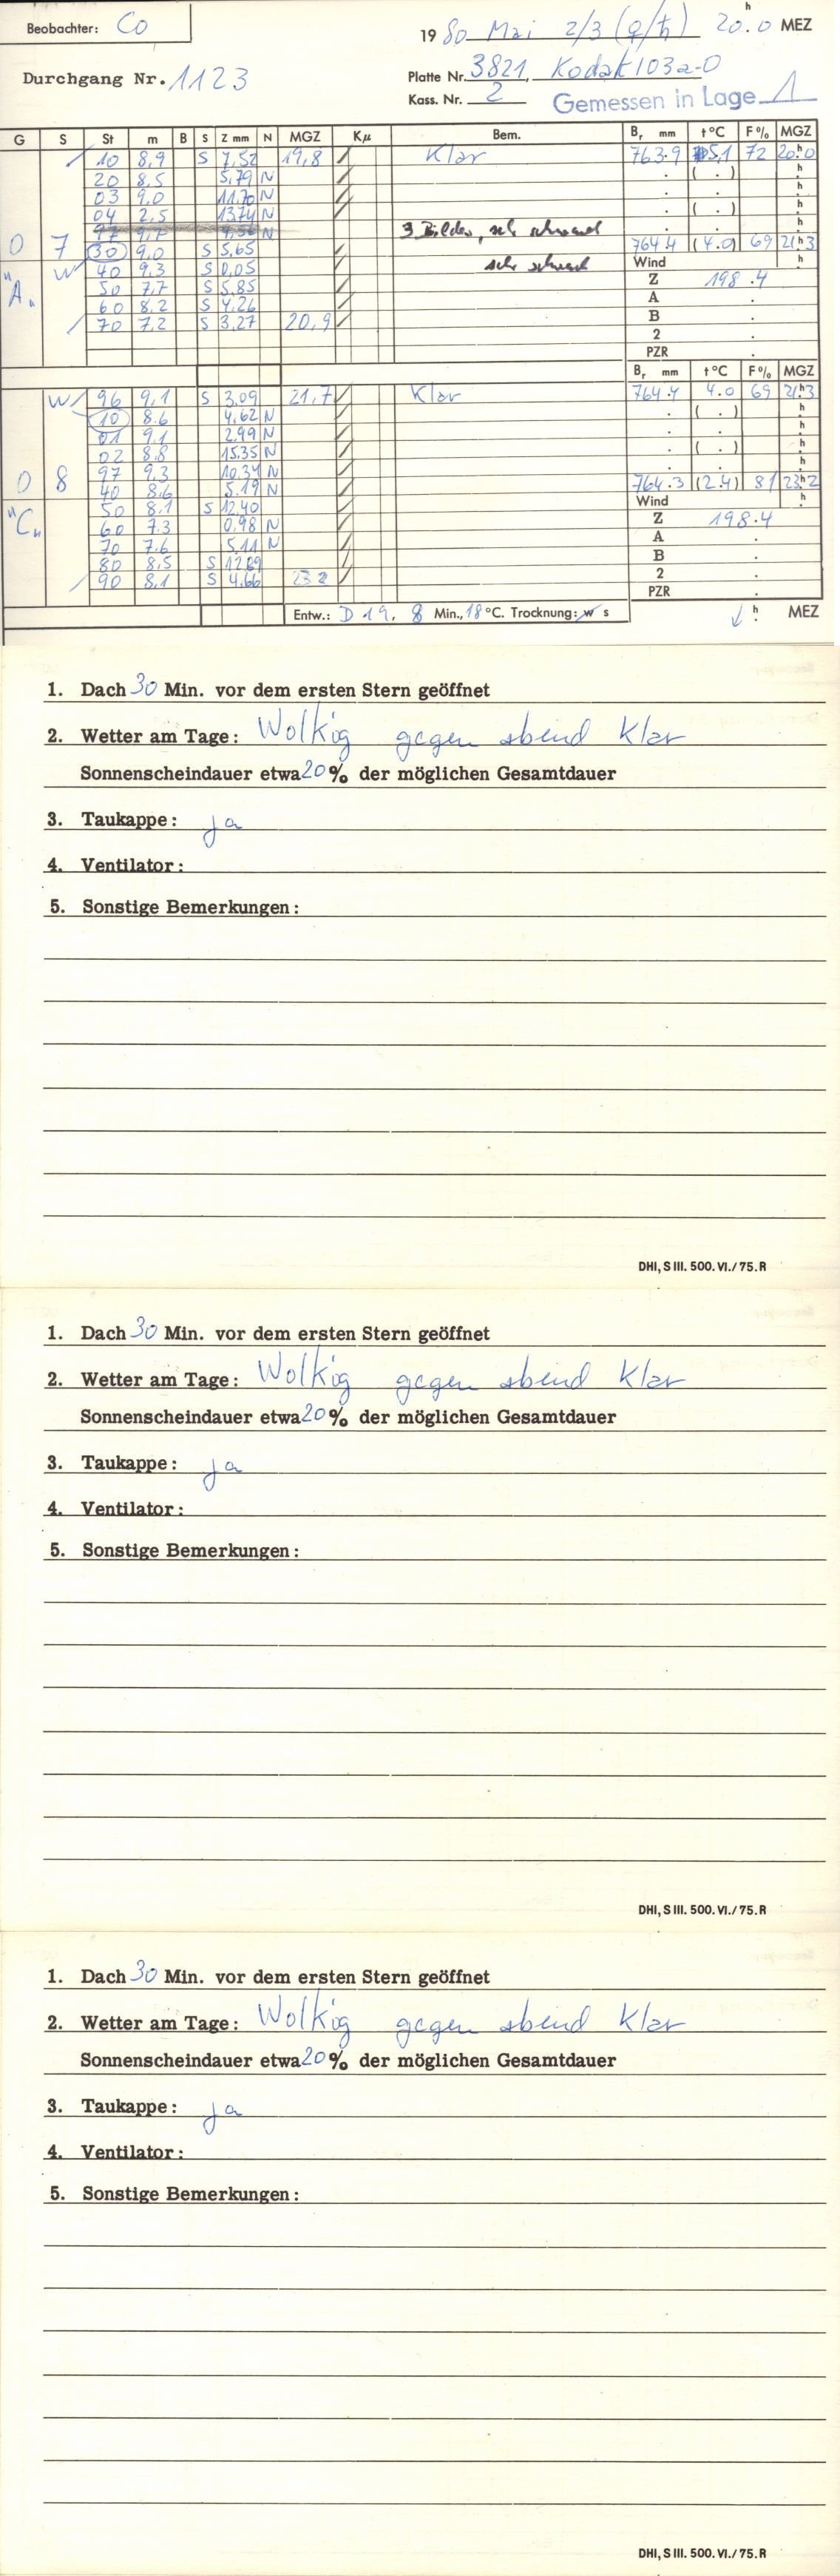 Beobachter: Co
1980 Mai 2/3 (♀/♄) 20.0 h MEZ
Durchgang Nr. 1123
Platte Nr. 3821, Kodak 103a-O
Kass. Nr. 2 Gemessen in Lage 1
G S St m B S Z mm N MGZ Kμ Bem. Br mm t°C F% MGZ
10 8,9 S 7,52 19,8 Klar 763.9 5,1 72 20h0
20 8,5 5,79 N ( . ) h
03 9,0 11.70 N h
04 2,5 13.74 N ( . ) h
3 Bilder, sehr schwach
0 7 30 9,0 S 5,65 764.4 (4.0) 69 21h3
"A" W 40 9,3 S 0,05 sehr schwach Wind h
50 7,7 S 5,85 Z 198.4
60 8,2 S 4,26 A
70 7,2 S 3,27 20,9 B
2
PZR
Br mm t°C F% MGZ
W 96 9,1 S 3.09 21,7 Klar 764.4 4.0 69 21h3
10 8.6 4,62 N ( . ) h
01 9,1 2,99 N h
02 8.8 15.35 N ( . ) h
97 9,3 10.34 N h
0 8 40 8,6 5.19 N 764.3 (2.4) 81 23h2
"C" 50 8,1 S 12,40 Wind h
60 7.3 0,98 N Z 198.4
70 7.6 5,11 N A
80 8,5 S 12,89 B
90 8,1 S 4,66 23 2 2
PZR
Entw.: D 19, 8 Min., 18 °C. Trocknung: w s h MEZ
1. Dach 30 Min. vor dem ersten Stern geöffnet
2. Wetter am Tage: Wolkig gegen abend Klar
Sonnenscheindauer etwa 20 % der möglichen Gesamtdauer
3. Taukappe: ja
4. Ventilator:
5. Sonstige Bemerkungen:
DHI, S III. 500. VI./75. R
1. Dach 30 Min. vor dem ersten Stern geöffnet
2. Wetter am Tage: Wolkig gegen abend Klar
Sonnenscheindauer etwa 20 % der möglichen Gesamtdauer
3. Taukappe: ja
4. Ventilator:
5. Sonstige Bemerkungen:
DHI, S III. 500. VI./75. R
1. Dach 30 Min. vor dem ersten Stern geöffnet
2. Wetter am Tage: Wolkig gegen abend Klar
Sonnenscheindauer etwa 20 % der möglichen Gesamtdauer
3. Taukappe: ja
4. Ventilator:
5. Sonstige Bemerkungen:
DHI, S III. 500. VI./75. R